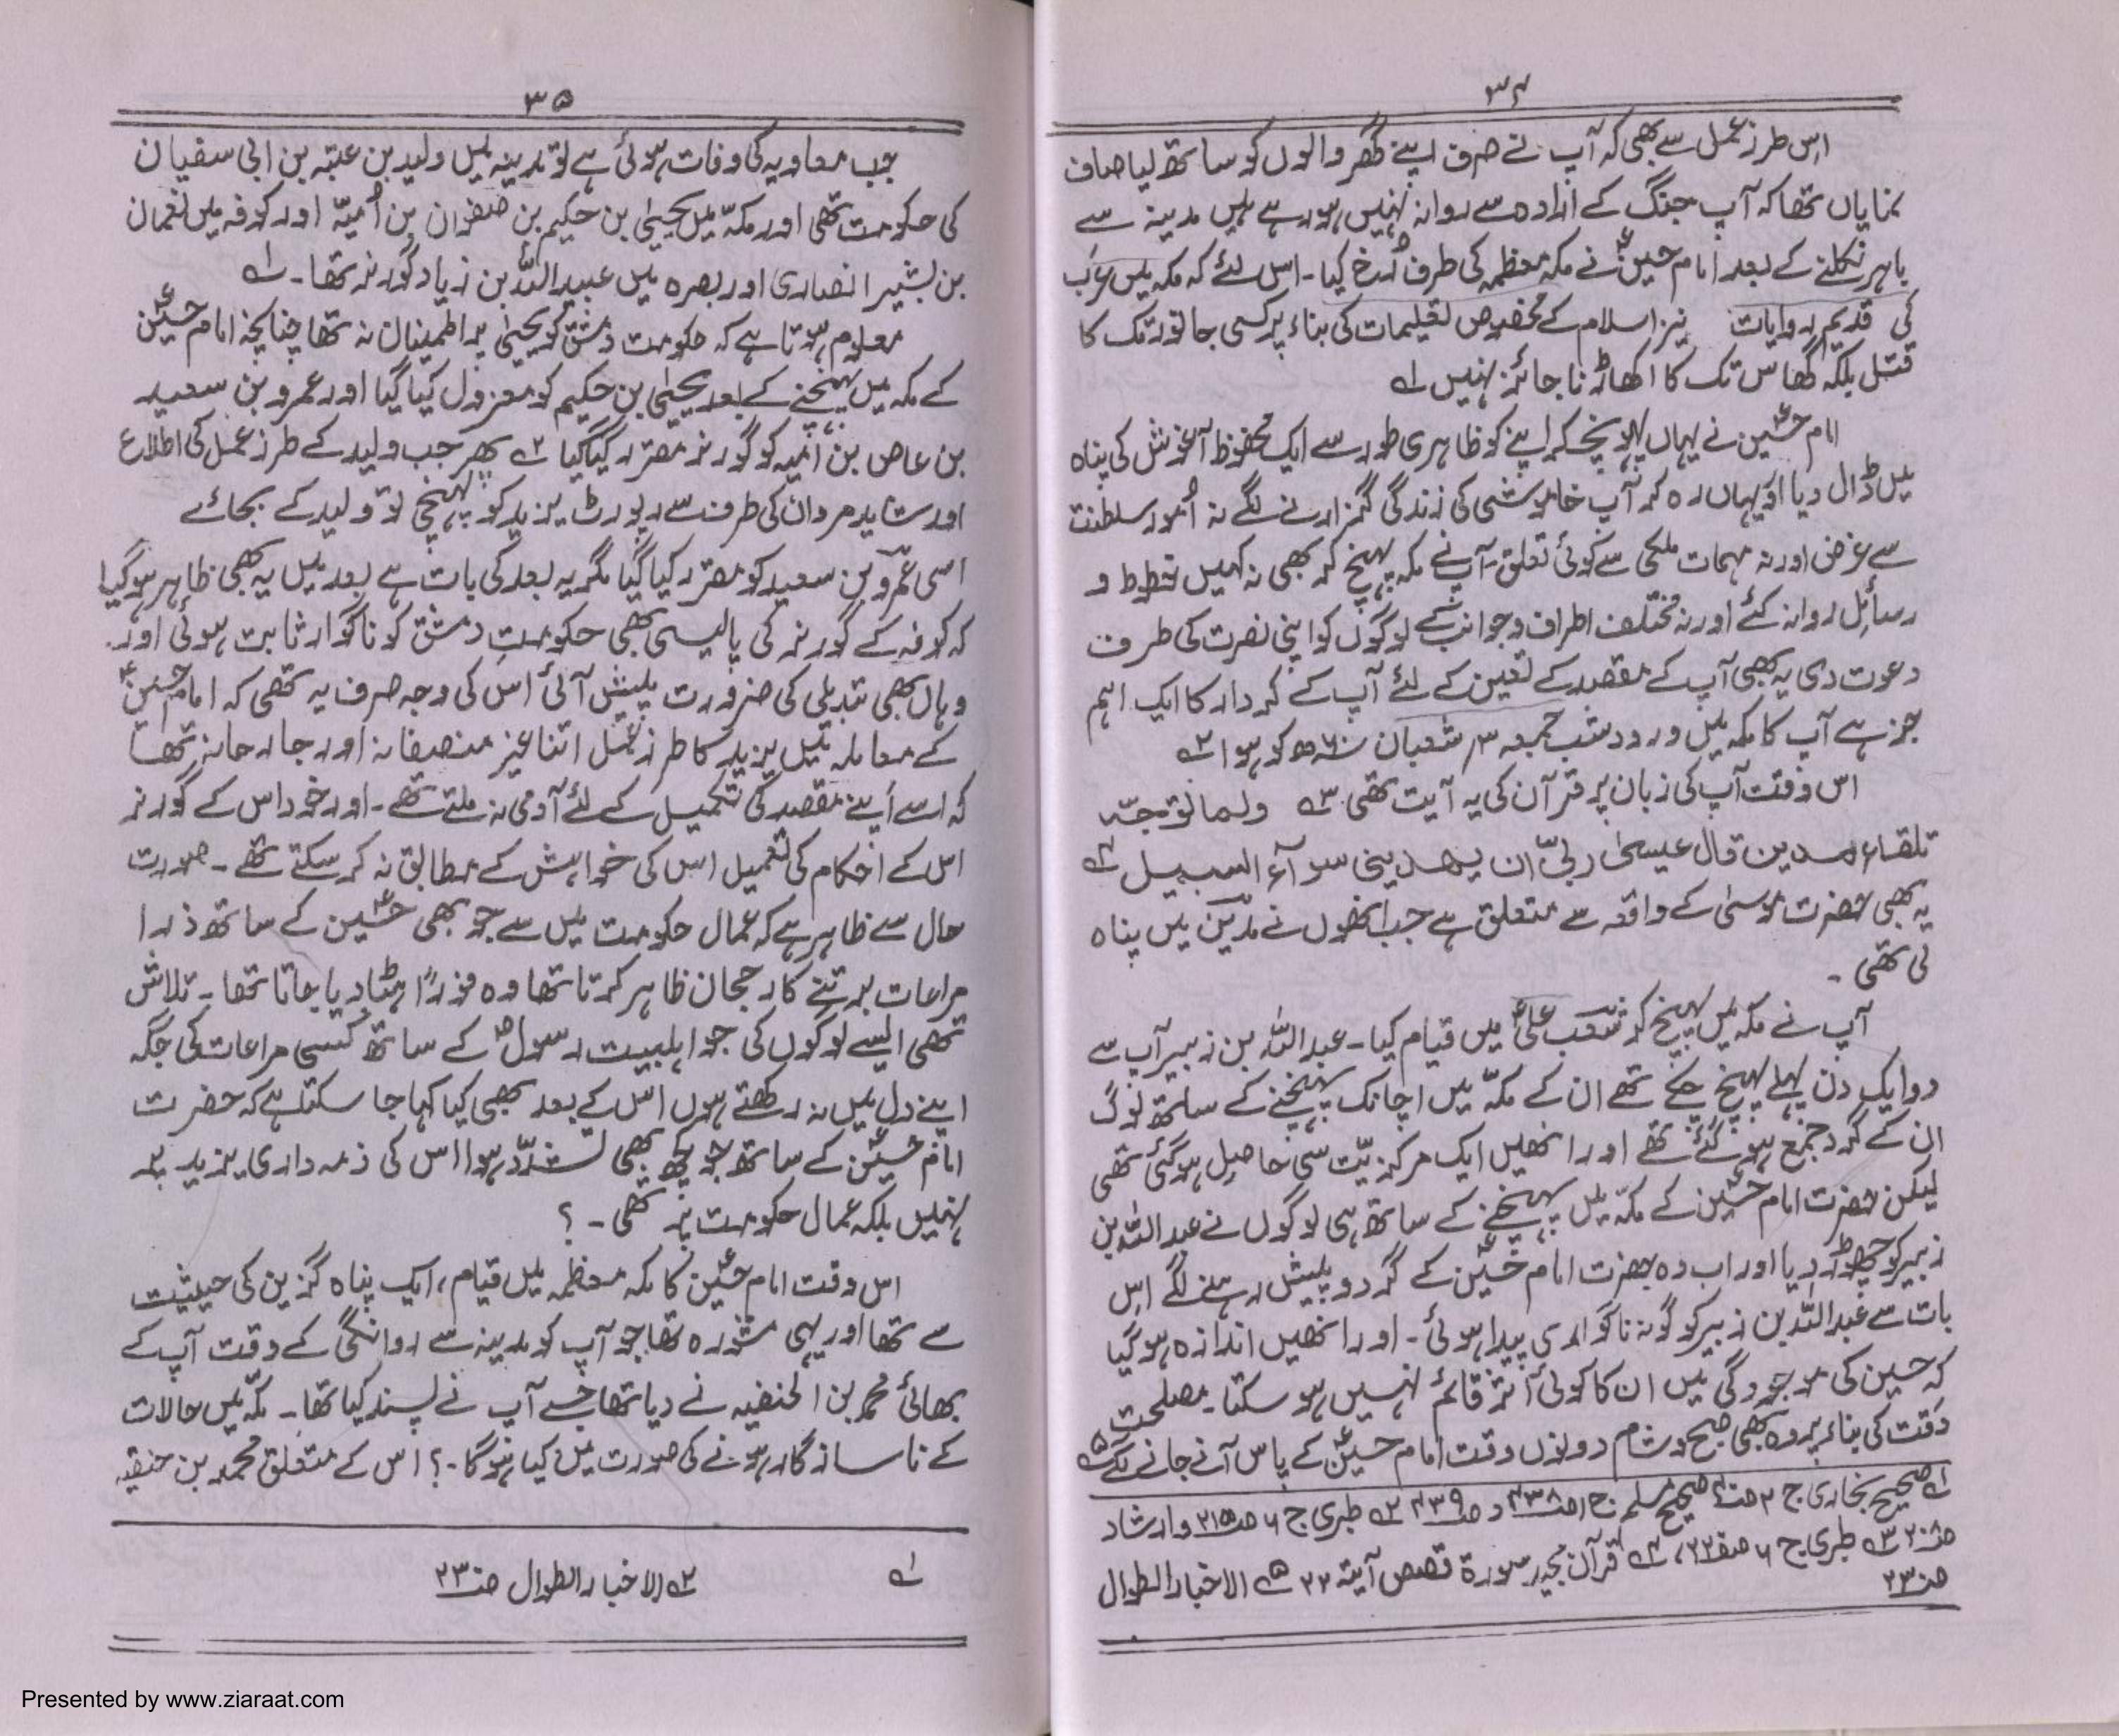 ۳۴
اس طرز عمل سے بھی کہ آپ نے صرف اپنے گھر والوں کو ساتھ لیا صاف
نمایاں تھا کہ آپ جنگ کے ارادہ سے روانہ نہیں ہو رہے ہیں مدینہ سے
باہر نکلنے کے بعد امام حسینؑ نے مکہ معظمہ کی طرف رُخ کیا۔ اس لئے کہ مکہ میں عرب
کی قدیم روایات نیز اسلام کے مخصوص تعلیمات کی بناء پر کسی جانور تک کا
قتل بلکہ گھاس تک کا اکھاڑنا جائز نہیں ۱؎
امام حسینؑ نے یہاں پہونچکر اپنے کو ظاہری طور سے ایک محفوظ آغوش کی پناہ
میں ڈال دیا اور یہاں رہ کر آپ خاموشی کی زندگی گزارنے لگے نہ اُمور سلطنت
سے غرض اور نہ مہمات ملکی سے کوئی تعلق۔ آپ نے مکہ پہنچ کر بھی نہ کہیں خطوط و
رسائل روانہ کئے اور نہ مختلف اطراف وجوانب کے لوگوں کو اپنی نصرت کی طرف
دعوت دی یہ بھی آپ کے مقصد کے تعین کے لئے آپ کے کردار کا ایک اہم
جز ہے آپ کا مکہ میں ورود شب جمعہ ۳ر شعبان ۶۰ھ کو ہوا ۲؎
اس وقت آپ کی زبان پر قرآن کی یہ آیت تھی ۳؎ ولما توجّہ
تلقاء مدین قال عیسیٰ ربیّ ان یھدینی سوآء السبیل ۴؎
یہ بھی حضرت موسیٰ کے واقعہ سے متعلق ہے جب انھوں نے مدین میں پناہ
لی تھی ۔
آپ نے مکہ میں پہنچ کر شعب علیؑ میں قیام کیا۔ عبداللہ بن زبیر آپ سے
دو ایک دن پہلے پہنچ چکے تھے ان کے مکہّ میں اچانک پہنچنے کے ساتھ لوگ
ان کے گرد جمع ہو گئے تھے اور انھیں ایک مرکزیّت سی حاصل ہو گئی تھی
لیکن حضرت امام حسینؑ کے مکہّ میں پہنچنے کے ساتھ ہی لوگوں نے عبداللہ بن
زبیر کو چھوڑ دیا اور اب وہ حضرت امام حسینؑ کے گرد و پیش رہنے لگے اس
بات سے عبداللہ بن زبیر کو گونہ ناگواری پیدا ہوئی۔ اور انھیں اندازہ ہو گیا
کہ حسین کی موجودگی میں ان کا کوئی اثر قائم نہیں ہو سکتا۔ مصلحت
وقت کی بناء پر وہ بھی صبح و شام دونوں وقت امام حسینؑ کے پاس آنے جانے لگے ۵؎
۱؎ صحیح بخاری ج ۲ صحیح مسلم ج ۱ ص ۴۳۸ و ص ۴۳۹ ۲؎ طبری ج ۶ ص ۲۱۵ و ارشاد
ص ۲۰۸ ۳؎ طبری ج ۶ ۴؎ قرآن مجید سورۃ قصص آیۃ ۲۲ ۵؎ الاخبار الطوال
ص ۲۳
۳۵
جب معاویہ کی وفات ہوئی ہے تو مدینہ میں ولید بن عتبہ بن ابی سفیان
کی حکومت تھی اور مکہّ میں یحییٰ بن حکیم بن صفوان بن اُمیّہ اور کوفہ میں نعمان
بن بشیر انصاری اور بصرہ میں عبیداللہ بن زیاد گورنر تھا۔ ۱؎
معلوم ہوتا ہے کہ حکومت دمشق کو یحییٰ پر اطمینان نہ تھا چنانچہ امام حسینؑ
کے مکہ میں پہنچنے کے بعد یحییٰ بن حکیم کو معزول کیا گیا اور عمرو بن سعید
بن عاص بن اُمیہ کو گورنر مقرر کیا گیا ۲؎ پھر جب ولید کے طرز عمل کی اطلاع
اور شاید مروان کی طرف سے رپورٹ یزید کو پہنچی تو ولید کے بجائے
اسی عمرو بن سعید کو مقرر کیا گیا مگر یہ بعد کی بات ہے بعد میں یہ بھی ظاہر ہو گیا
کہ کوفہ کے گورنر کی پالیسی بھی حکومت دمشق کو ناگوار ثابت ہوئی اور
وہاں بھی تبدیلی کی ضرورت پیش آئی اس کی وجہ صرف یہ تھی کہ امام حسینؑ
کے معاملہ میں یزید کا طرز عمل اتنا غیر منصفانہ اور جارحانہ تھا
کہ اسے اپنے مقصد کی تکمیل کے لئے آدمی نہ ملتے تھے۔ اور خود اس کے گورنر
اس کے احکام کی تعمیل اس کی خواہش کے مطابق نہ کر سکتے تھے ۔ صورت
حال سے ظاہر ہے کہ عمال حکومت میں سے جو بھی حسینؑ کے ساتھ ذرا
مراعات برتنے کا رجحان ظاہر کرتا تھا وہ فوراً ہٹا دیا جاتا تھا۔ تلاش
تھی ایسے لوگوں کی جو اہلبیت رسولؐ کے ساتھ کسی مراعات کی جگہ
اپنے دل میں نہ رکھتے ہوں اس کے بعد بھی کیا کہا جا سکتا ہے کہ حضرت
امام حسینؑ کے ساتھ جو کچھ بھی تشدّد ہوا اس کی ذمہ داری یزید پر
نہیں بلکہ عمال حکومت پر تھی ۔ ؟
اس وقت امام حسینؑ کا مکہ معظمہ میں قیام، ایک پناہ گزین کی حیثیت
سے تھا اور یہی مشورہ تھا جو آپ کو مدینہ سے روانگی کے وقت آپ کے
بھائی محمد بن الحنفیہ نے دیا تھا جسے آپ نے پسند کیا تھا۔ مکہّ میں حالات
کے ناسازگار ہونے کی صورت میں کیا ہوگا ۔؟ اس کے متعلق محمد بن حنفیہ
۱؎ ۲؎ الاخبار الطوال ص ۲۳
Presented by www.ziaraat.com